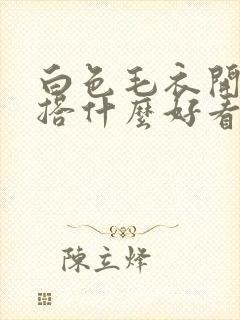 白色毛衣開
搭什麼好看
陳立烽